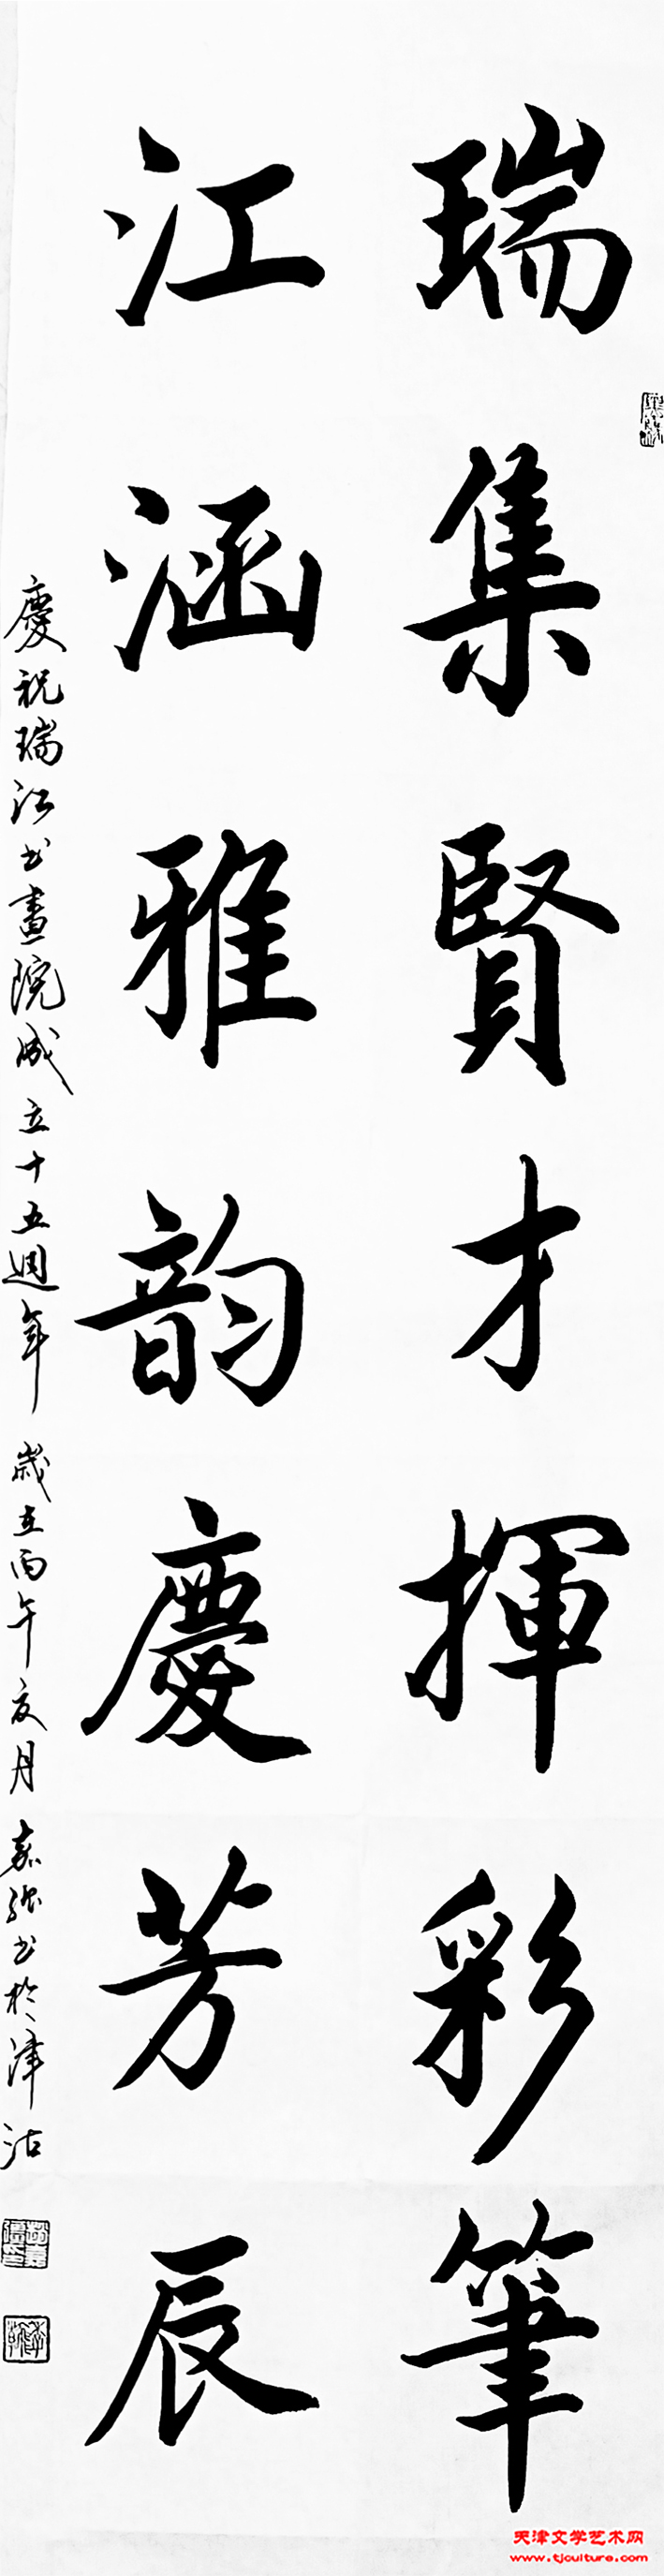 瑞集賢才揮彩筆
江涵雅韵慶芳辰
慶祝瑞江书畫院成立十五週年 歲在丙午夏月 嘉強书於津沽
天津文学艺术网
www.tjculture.com